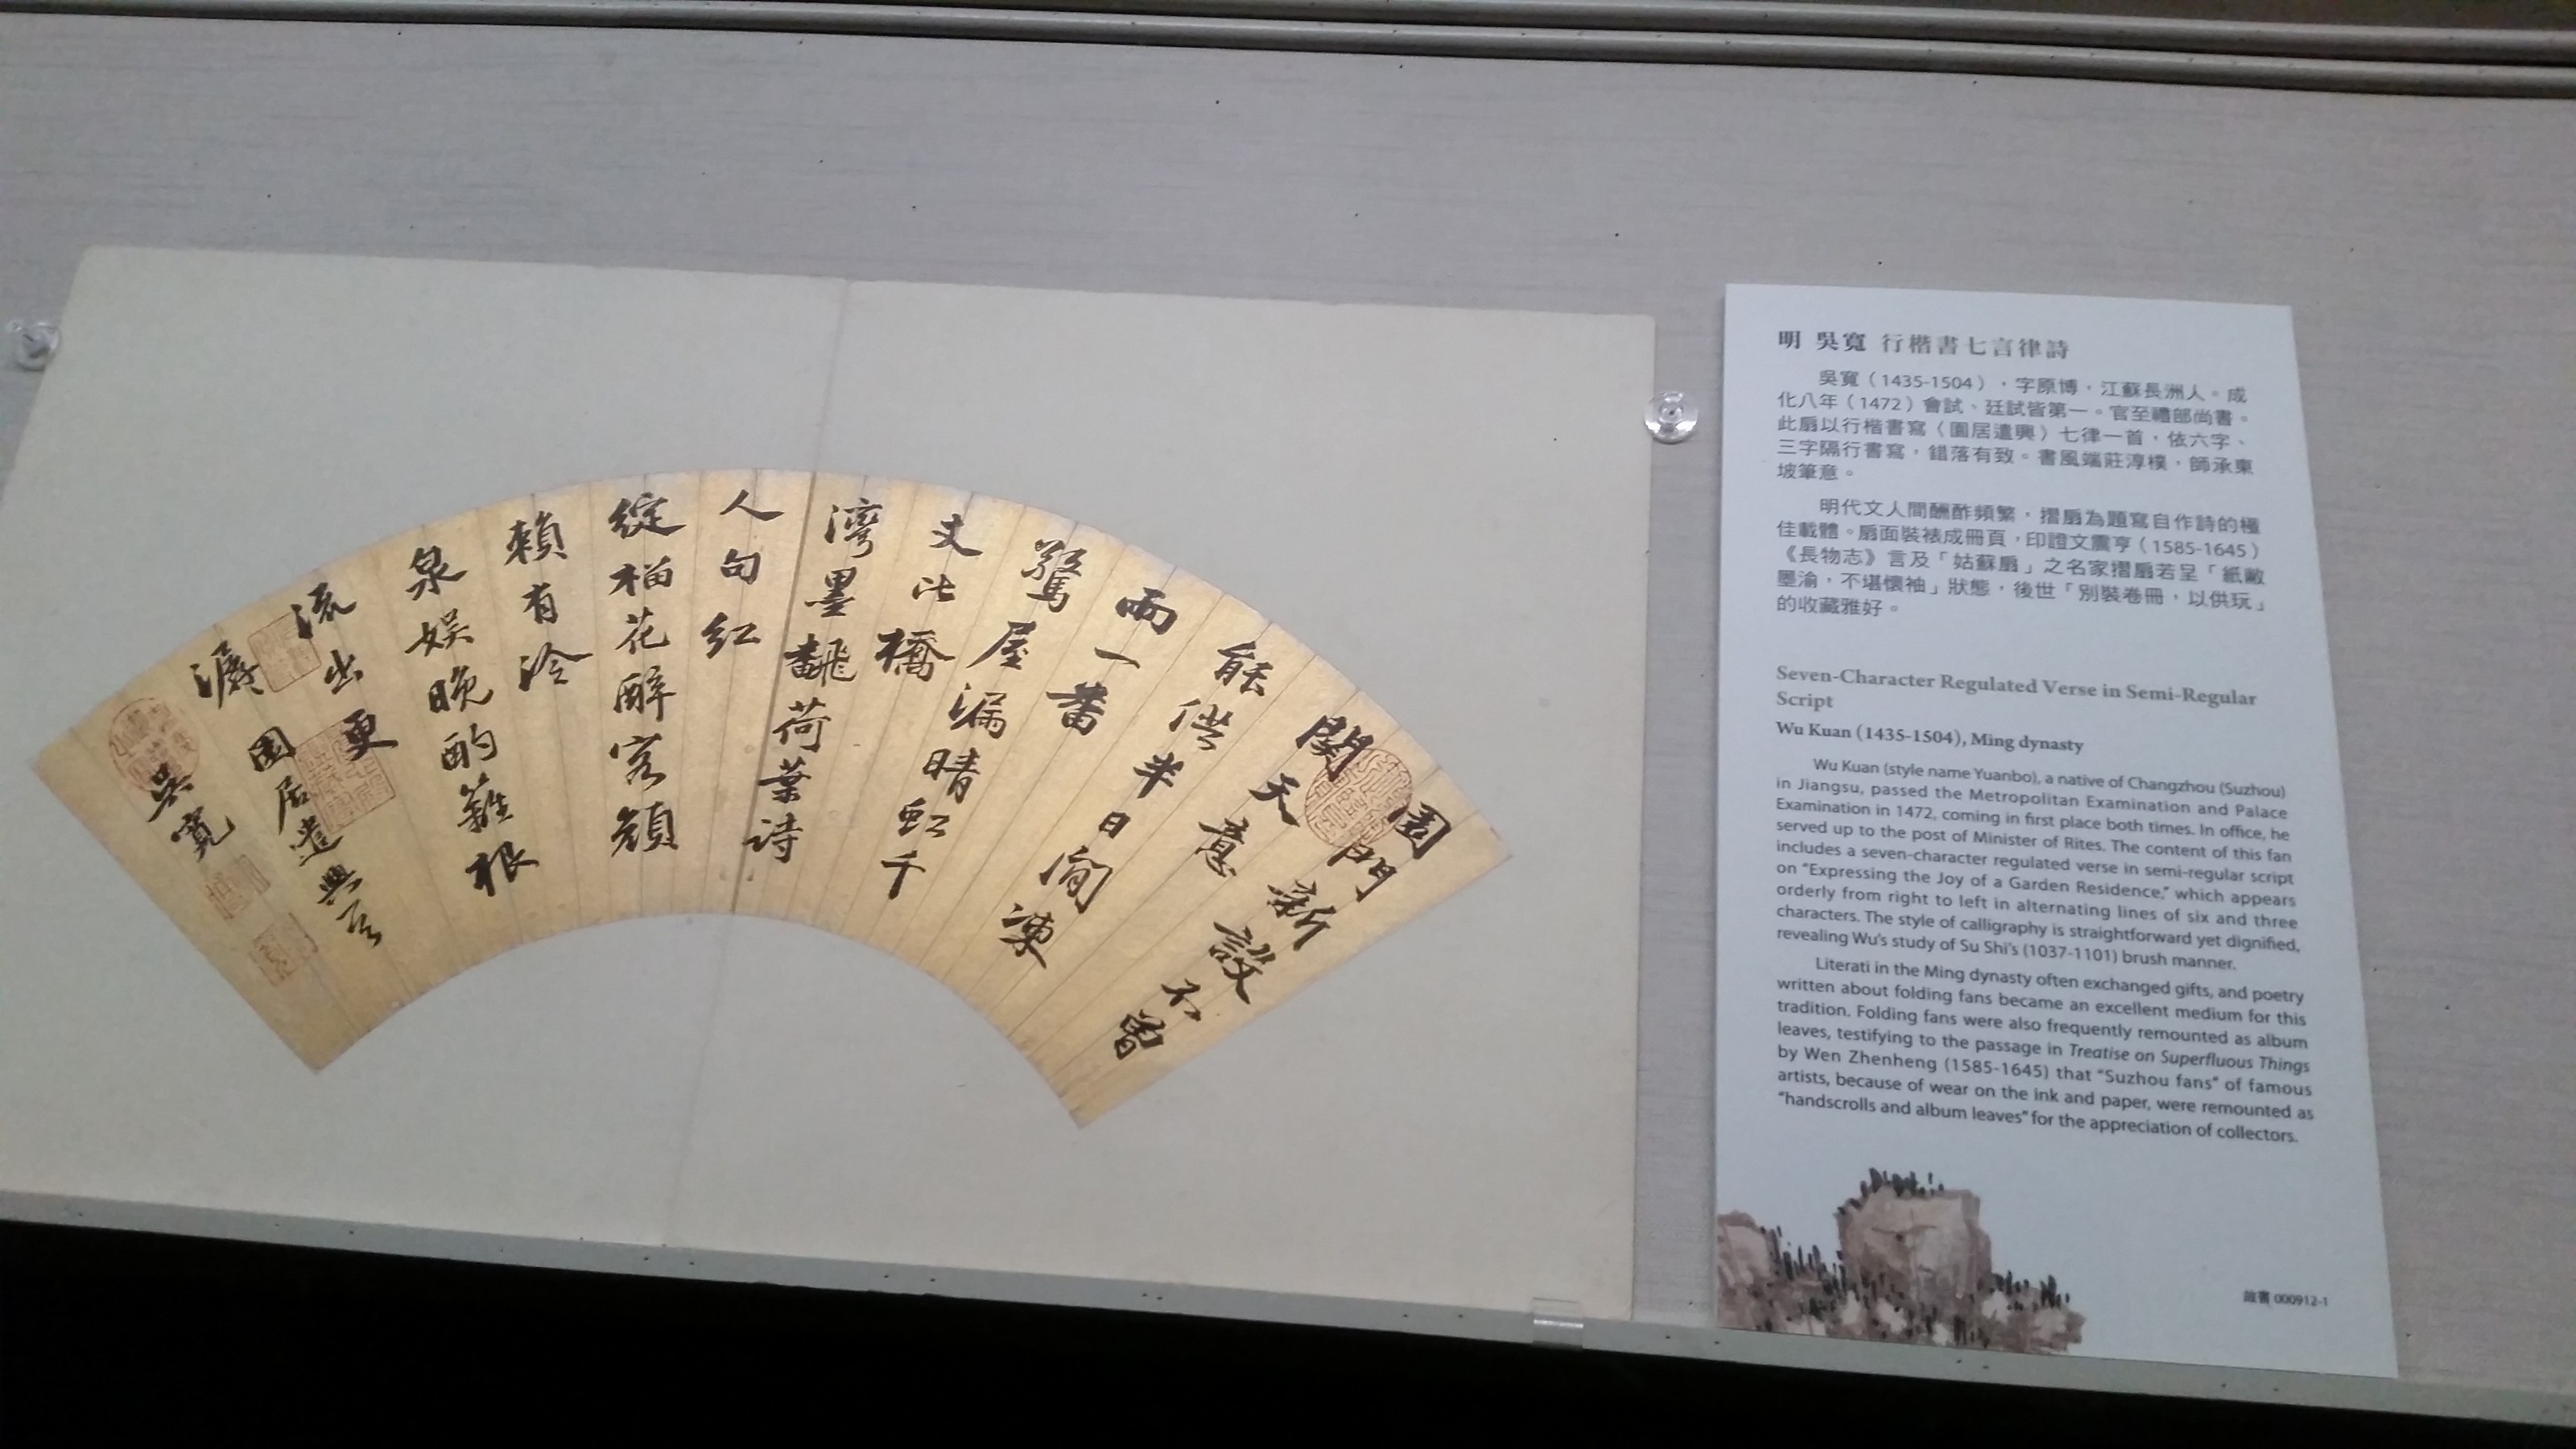 園門新設不曾
関天意
能供半日閒凍
雨一番
驚屋漏晴虹千
丈比橋
灣墨翻荷葉詩
人句紅
綻榴花醉客顏
賴有泠
泉娛晚酌籬根
流出更
潺
園居遣興
吳寬
明 吳寬 行楷書七言律詩
吳寬（1435-1504），字原博，江蘇長洲人。成
化八年（1472）會試、廷試皆第一。官至禮部尚書。
此扇以行楷書寫〈園居遣興〉七律一首，依六字、
三字隔行書寫，錯落有致。書風端莊淳樸，師承東
坡筆意。
明代文人間酬酢頻繁，摺扇為題寫自作詩的極
佳載體。扇面裝裱成冊頁，印證文震亨（1585-1645）
《長物志》言及「姑蘇扇」之名家摺扇若呈「紙敝
墨渝，不堪懷袖」狀態，後世「別裝卷冊，以供玩」
的收藏雅好。
Seven-Character Regulated Verse in Semi-Regular
Script
Wu Kuan (1435-1504), Ming dynasty
Wu Kuan (style name Yuanbo), a native of Changzhou (Suzhou)
in Jiangsu, passed the Metropolitan Examination and Palace
Examination in 1472, coming in first place both times. In office, he
served up to the post of Minister of Rites. The content of this fan
includes a seven-character regulated verse in semi-regular script
on “Expressing the Joy of a Garden Residence,” which appears
orderly from right to left in alternating lines of six and three
characters. The style of calligraphy is straightforward yet dignified,
revealing Wu’s study of Su Shi’s (1037-1101) brush manner.
Literati in the Ming dynasty often exchanged gifts, and poetry
written about folding fans became an excellent medium for this
tradition. Folding fans were also frequently remounted as album
leaves, testifying to the passage in Treatise on Superfluous Things
by Wen Zhenheng (1585-1645) that “Suzhou fans” of famous
artists, because of wear on the ink and paper, were remounted as
“handscrolls and album leaves” for the appreciation of collectors.
故書 000912-1